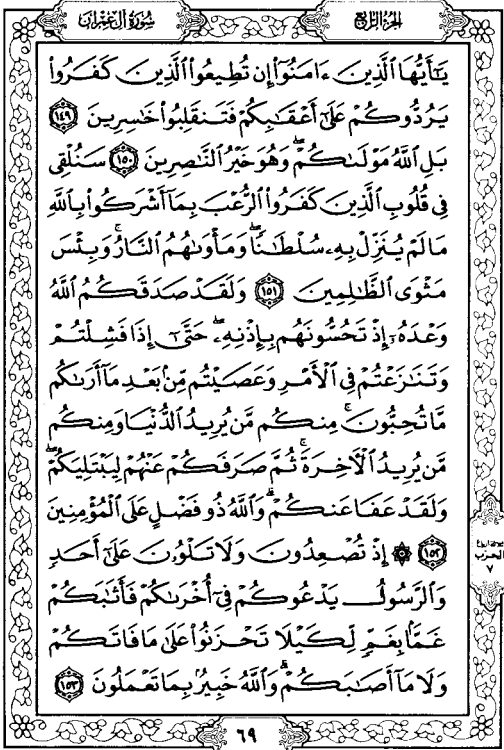 سُورَةُ آلِ عِمْرَان
الجُزْءُ الرَّابِعُ
يَٰٓأَيُّهَا ٱلَّذِينَ ءَامَنُوٓا۟ إِن تُطِيعُوا۟ ٱلَّذِينَ كَفَرُوا۟
يَرُدُّوكُمْ عَلَىٰٓ أَعْقَٰبِكُمْ فَتَنقَلِبُوا۟ خَٰسِرِينَ ١٤٩
بَلِ ٱللَّهُ مَوْلَىٰكُمْ ۖ وَهُوَ خَيْرُ ٱلنَّٰصِرِينَ ١٥٠ سَنُلْقِى
فِى قُلُوبِ ٱلَّذِينَ كَفَرُوا۟ ٱلرُّعْبَ بِمَآ أَشْرَكُوا۟ بِٱللَّهِ
مَا لَمْ يُنَزِّلْ بِهِۦ سُلْطَٰنًا ۖ وَمَأْوَىٰهُمُ ٱلنَّارُ ۚ وَبِئْسَ
مَثْوَى ٱلظَّٰلِمِينَ ١٥١ وَلَقَدْ صَدَقَكُمُ ٱللَّهُ
وَعْدَهُۥٓ إِذْ تَحُسُّونَهُم بِإِذْنِهِۦ ۖ حَتَّىٰٓ إِذَا فَشِلْتُمْ
وَتَنَٰزَعْتُمْ فِى ٱلْأَمْرِ وَعَصَيْتُم مِّنۢ بَعْدِ مَآ أَرَىٰكُم
مَّا تُحِبُّونَ ۚ مِنكُم مَّن يُرِيدُ ٱلدُّنْيَا وَمِنكُم
مَّن يُرِيدُ ٱلْءَاخِرَةَ ۚ ثُمَّ صَرَفَكُمْ عَنْهُمْ لِيَبْتَلِيَكُمْ ۖ
وَلَقَدْ عَفَا عَنكُمْ ۗ وَٱللَّهُ ذُو فَضْلٍ عَلَى ٱلْمُؤْمِنِينَ
١٥٢ ۞ إِذْ تُصْعِدُونَ وَلَا تَلْوُۥنَ عَلَىٰٓ أَحَدٍ
وَٱلرَّسُولُ يَدْعُوكُمْ فِىٓ أُخْرَىٰكُمْ فَأَثَٰبَكُمْ
غَمًّۢا بِغَمٍّ لِّكَيْلَا تَحْزَنُوا۟ عَلَىٰ مَا فَاتَكُمْ
وَلَا مَآ أَصَٰبَكُمْ ۗ وَٱللَّهُ خَبِيرٌۢ بِمَا تَعْمَلُونَ ١٥٣
الحزب
٧
٦٩